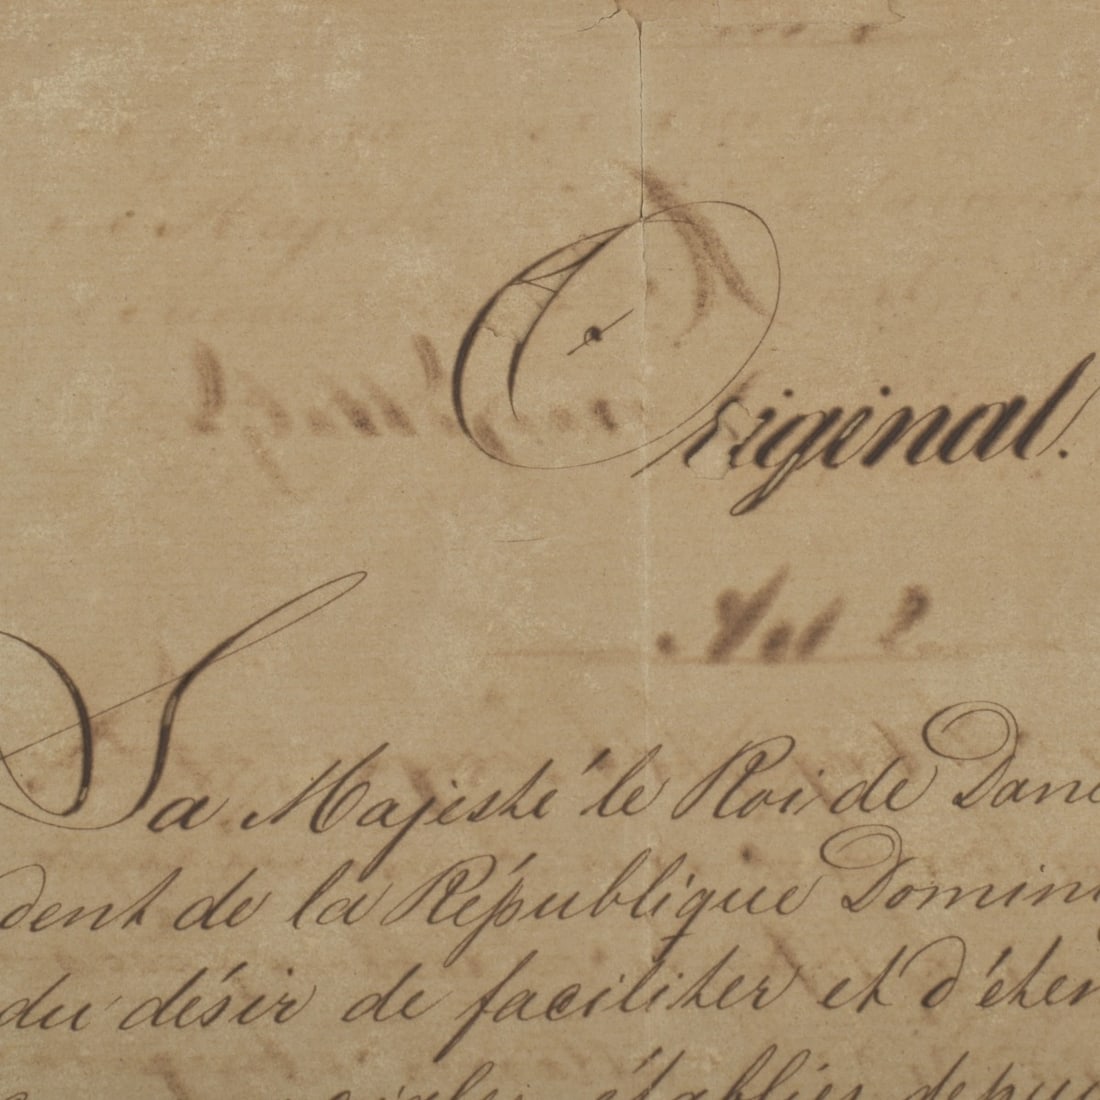 Original.
Sa Majesté le Roi de Dane
dent de la République Domini
du désir de faciliter et d'éten
établies depui